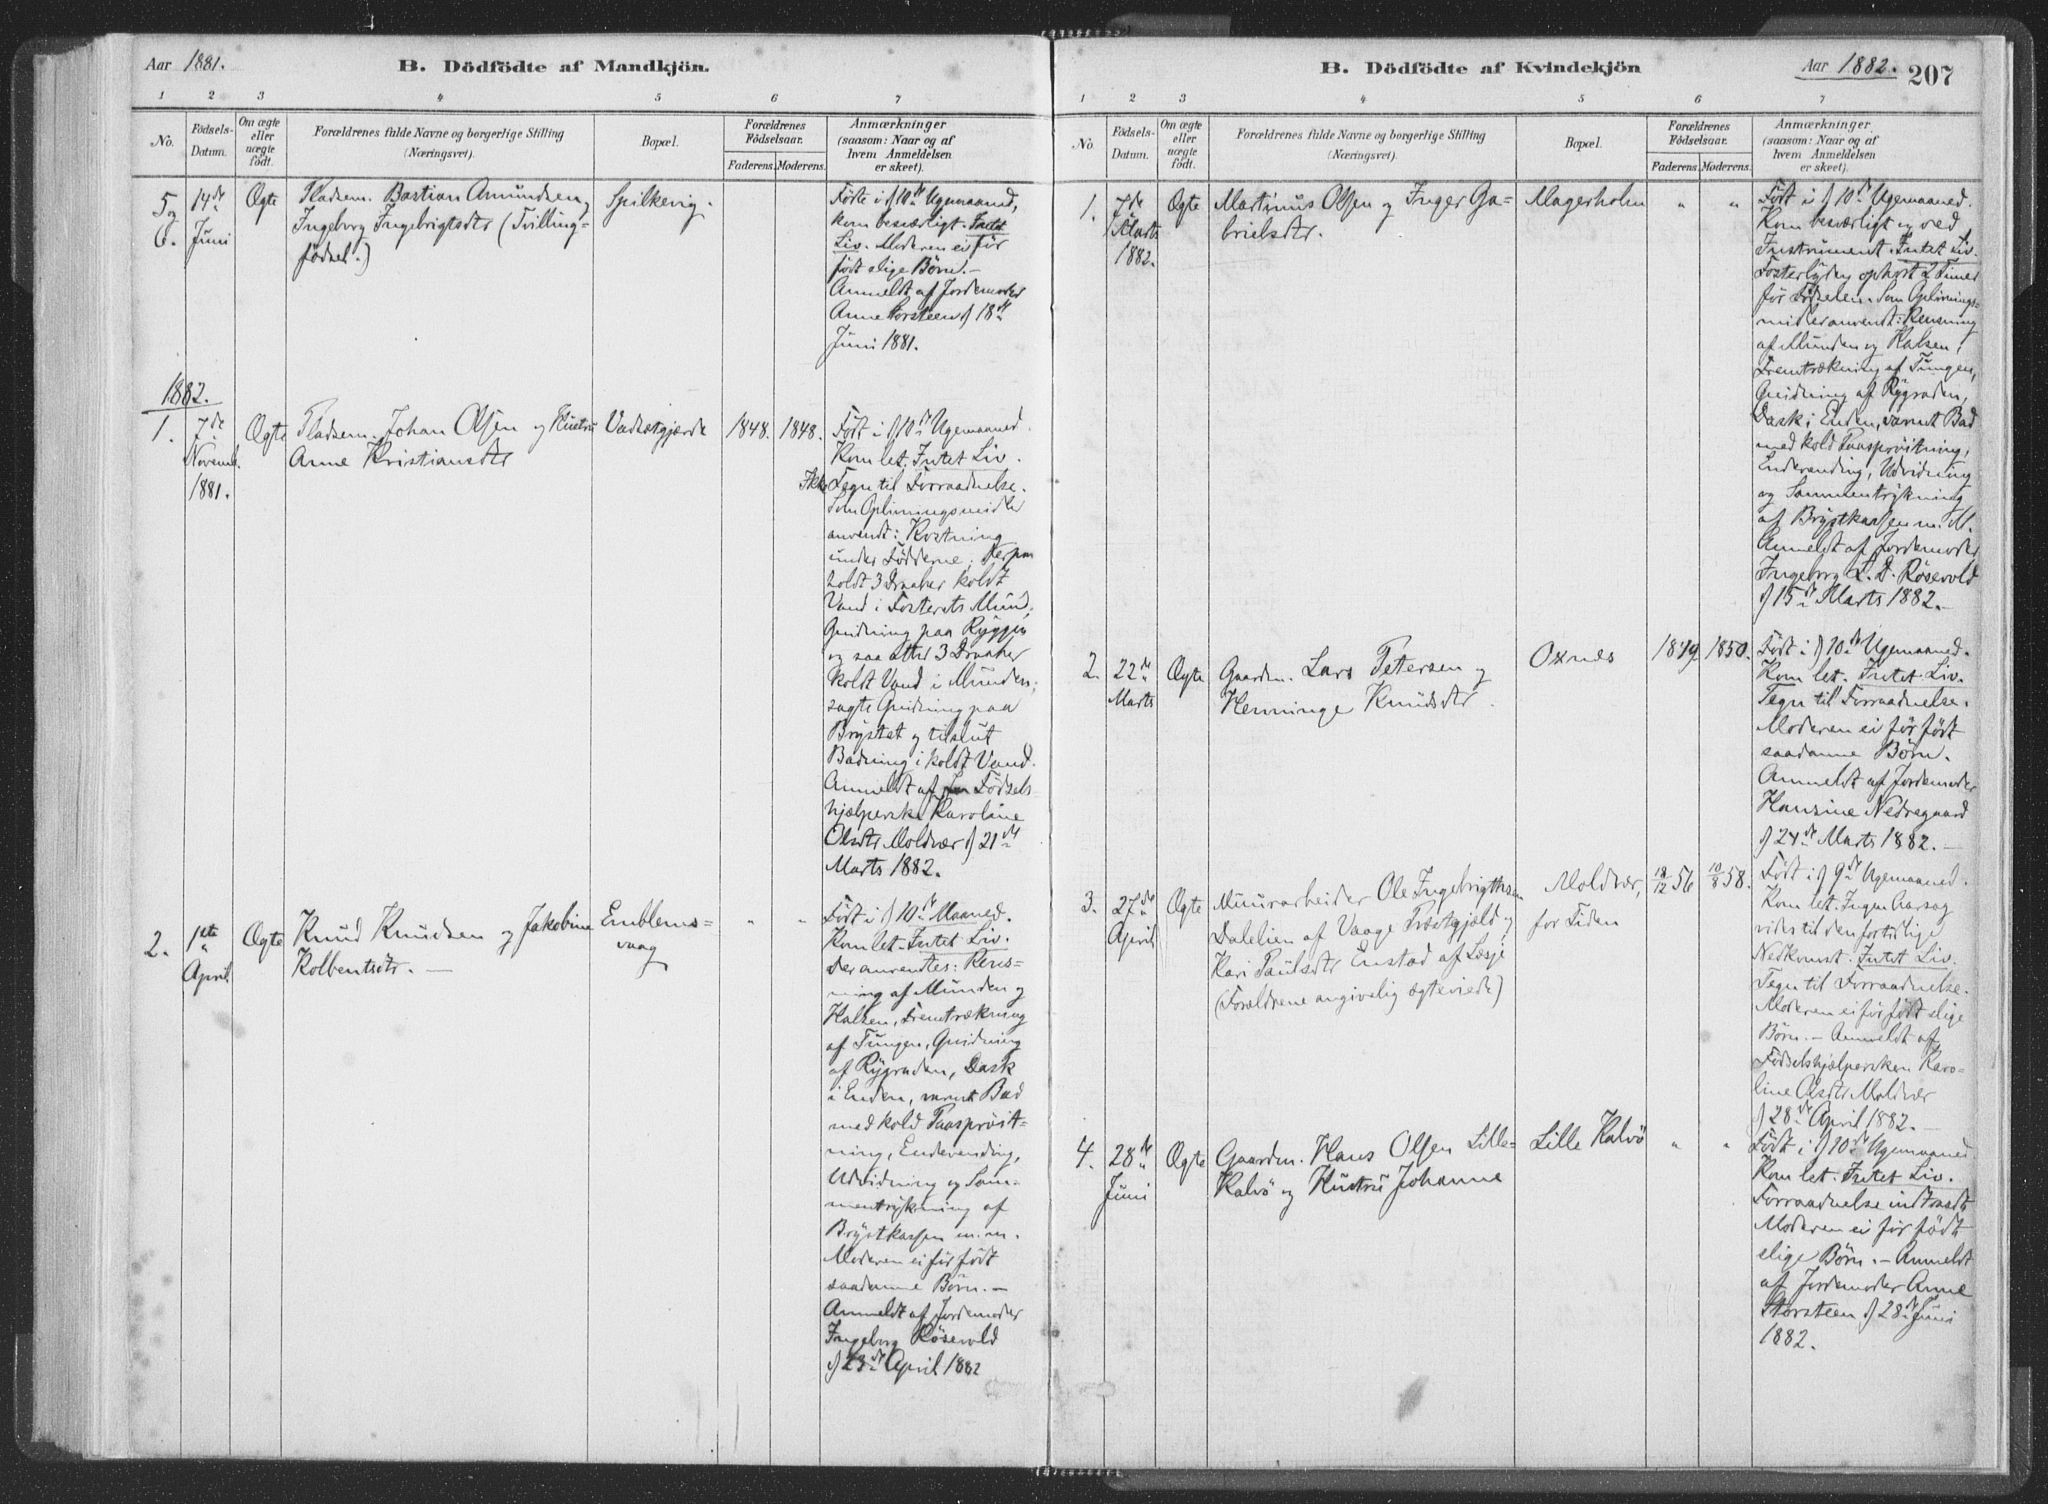 Aar 1881.
B. Dödfödte af Mandkjön.
1 2 3 4 5 6 7
No.
Födsels-
Datum.
Om ægte
eller
uægte
födt.
Forældrenes fulde Navne og borgerlige Stilling
(Næringsvei).
Bopæl.
Forældrenes
Födselsaar.
Faderens. Moderens.
Anmærkninger
(saasom: Naar og af
hvem Anmeldelsen
er skeet).
5
og
6.
14de
Juni
Ægte
Pladsm. Bastian Amundsen og
Ingeborg Ingebrigtsdtr (Tvilling-
födsel.)
Spilkevig.
Födte i d 10de Ugemaaned,
kom besværligt. Intet
Liv. Moderen ei för
födt slige Börn.-
Anmeldt af Jordemoder
Anne Storsteen d 18de
Juni 1881.
1882.
1.
7de
Novemb.
1881.
Ægte
Pladsm. Johan Olsen og Hustru
Anne Kristiansdtr
Vadsetgjærde
1848. 1848.
Födt i d 10de Ugemaaned.
Kom let. Intet Liv.
Ikke Tegn til Forraadnelse.
Som Oplivningsmidler
anvendt: Kostning
under Födderne. Derpaa
holdt 3 Draaber koldt
Vand i Fosterets Mund,
Gnidning paa Ryggen
og saa atter 3 Draaber
koldt Vand i Munden,
sagte Gnidning paa
Brystet og tilslut
Badning i koldt Vand.
Anmeldt af Födsels-
hjælperske Karoline
Olsdtr Moldvær d 21de
Marts 1882.
2.
1ste
April
Ægte
Knud Knudsen og Jakobine
Kolbentsdtr. —
Emblems-
vaag
" "
Födt i d 10de Maaned.
Kom let. Intet Liv.
Der anvendtes: Rens-
ning af Munden og
Halsen, Fremtrækning
af Tungen, Gnidning
af Rygraden, Dask
i Enden, varmt Bad
med kold Paasprøit-
ning, Endevending,
Udvidning og Sam-
mentrykning af
Brystkassen m.m.
Moderen ei för födt
saadanne Börn.-
Anmeldt af Jordemoder
Ingeborg Rösevold
d 23de April 1882
B. Dödfödte af Kvindekjön
Aar 1882.
207
1 2 3 4 5 6 7
No
Födsels-
Datum.
Om ægte
eller
uægte
födt.
Forældrenes fulde Navne og borgerlige Stilling
(Næringsvei).
Bopæl.
Forældrenes
Födselsaar.
Faderens. Moderens.
Anmærkninger
(saasom: Naar og af
hvem Anmeldelsen
er skeet).
1.
7de
Marts
1882.
Ægte
Martinus Olsen og Inger Ga-
brielsdtr.
Magerholm
" "
Födt i d 10de Ugemaaned.
Kom besværligt og ved
Instrument. Intet Liv.
Fosterlyden ophørt 2 Timer
för Födselen. Som Oplivnings-
midler anvendt: Rensning
af Munden og Halsen,
Fremtrækning af Tungen,
Gnidning af Rygraden,
Dask i Enden, varmt Bad
med kold Paasprøitning,
Endevending, Udvidning
og Sammentrykning
af Brystkassen m. M.
Anmeldt af Jordemoder
Ingeborg L. D. Rösevold
d 15de Marts 1882.-
2.
22de
Marts
Ægte
Gaardm. Lars Petersen og
Henninge Knudsdtr.
Oxnes
1849 1850.
Födt i d 10de Ugemaaned.
Kom let. Intet Liv.
Tegn til Forraadnelse.
Moderen ei för födt
saadanne Börn.
Anmeldt af Jordemoder
Hansine Nedregaard
d 24de Marts 1882. -
3.
27de
April
Ægte
Muurarbeider Ole Ingebrigtsen
Dalelien af Vaage Præstgjæld og
Kari Paulsdtr Enstad af Lesje
(Forældrene angivelig ægteviede)
Moldvær,
for Tiden
18/12 56 10/8 58.
Födt i d 9de Ugemaaned.
Kom let. Ingen Aarsag
vides til den fortidlige
Nedkomst. Intet Liv.
Tegn til Forraadnelse.
Moderen ei för födt slige
Börn.- Anmeldt af
Födselshjælpersken Karo-
line Olsdtr Moldvær
d 28de April 1882. -
4.
28de
Juni
Ægte
Gaardm. Hans Olsen Lille-
Kalvö og Hustru Johanne
Lille Kalvö
" "
Födt i d 10de Ugemaaned.
Kom let. Intet Liv.
Forraadnelse indtraadt.
Moderen ei för födt
slige Börn.- Anmeldt
af Jordemoder Anne
Storsteen d 28de Juni
1882.